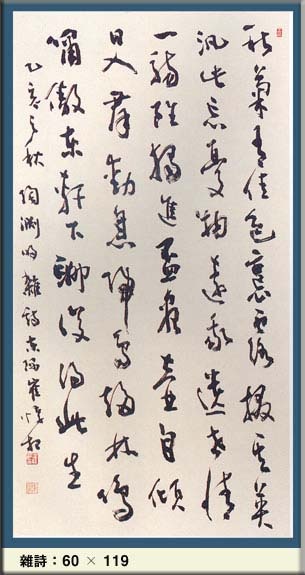 秋菊有佳色裛露掇其英
汎此忘憂物遠我遺世情
一觴雖獨進盃盡壺自傾
日入羣動息歸鳥趨林鳴
嘯傲東軒下聊復得此生
乙亥之秋 陶淵明雜詩 崔
雜詩：60 × 119